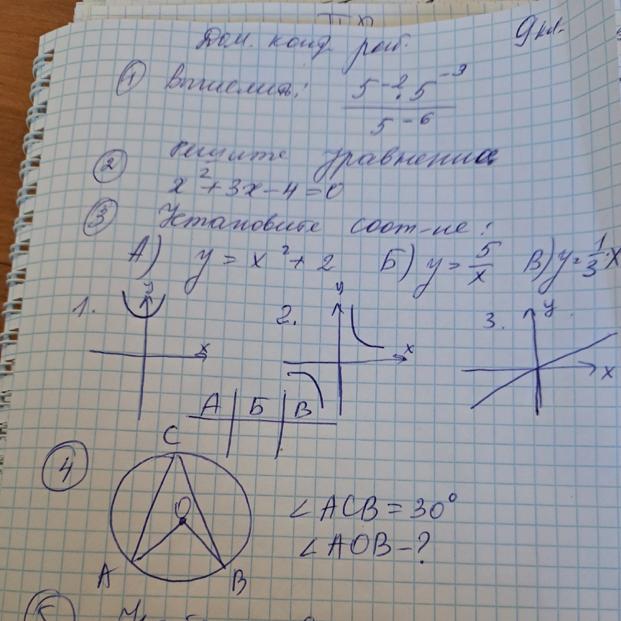 Дом. конт. раб. 9 кл.
① Вычислить: 5⁻² · 5⁻⁹ / 5⁻⁶
② Решите уравнения
x² + 3x - 4 = 0
③ Установите соот-ие:
А) y = x² + 2 Б) y = 5/x В) y = 1/3 x
1. y x 2. y x 3. y x
А Б В
④ C O A B
∠ACB = 30°
∠AOB - ?
⑤